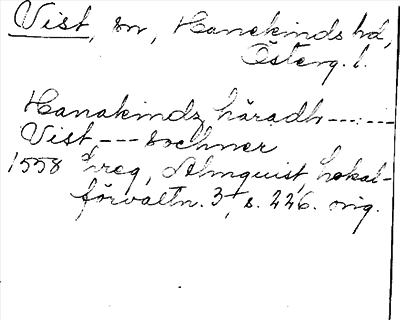 Vist, sn, Hanekinds hd,
Österg. l.
Hanakindz häradh ---:--
Vist, --- sochner
1558 Ureg, Almquist, Lokal-
förvaltn. 3, s. 226. orig.